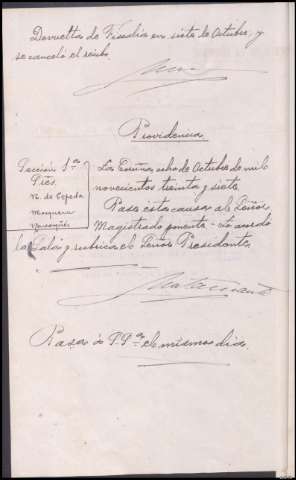 Devuelta de Fiscalía en siete de Octubre, y
se canceló el recibo.
Providencia
Sección 1ª
Sres.
N. de Cepeda
Mosquera
La Coruña ocho de Octubre de mil
novecientos treinta y siete
Pase esta causa al Señor
Magistrado ponente - Lo acordó
la Sala y rubrica el Señor Presidente
Pasa à P. Pte. el mismo dia.